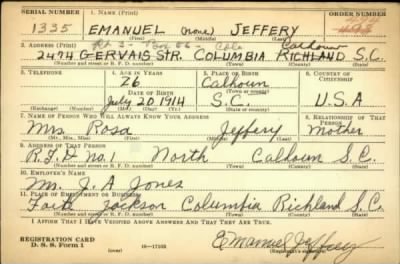 SERIAL NUMBER 1. NAME (Print) ORDER NUMBER
1335 EMANUEL (none) JEFFERY
(First) (Middle) (Last)
2. ADDRESS (Print) Rt 3 - Box 66 - Calhoun
2494 GERVAIS STR. COLUMBIA RICHLAND S.C.
(Number and street or R. F. D. number) (Town) (County) (State)
3. TELEPHONE 4. AGE IN YEARS 5. PLACE OF BIRTH 6. COUNTRY OF CITIZENSHIP
26 Calhoun
DATE OF BIRTH (Town or county)
July 20 1914 S.C. U.S.A
(Exchange) (Number) (Mo.) (Day) (Yr.) (State or country)
7. NAME OF PERSON WHO WILL ALWAYS KNOW YOUR ADDRESS 8. RELATIONSHIP OF THAT PERSON
Mrs. Rosa Jeffery Mother
(Mr., Mrs., Miss) (First) (Middle) (Last)
9. ADDRESS OF THAT PERSON
R.F.D No. 1 North Calhoun S.C.
(Number and street or R. F. D. number) (Town) (County) (State)
10. EMPLOYER'S NAME
Mr. J. A. Jones
11. PLACE OF EMPLOYMENT OR BUSINESS
Fort Jackson Columbia Richland S.C.
(Number and street or R. F. D. number) (Town) (County) (State)
I AFFIRM THAT I HAVE VERIFIED ABOVE ANSWERS AND THAT THEY ARE TRUE.
REGISTRATION CARD
D. S. S. FORM 1 (over) 16-17105 Emanuel Jeffery